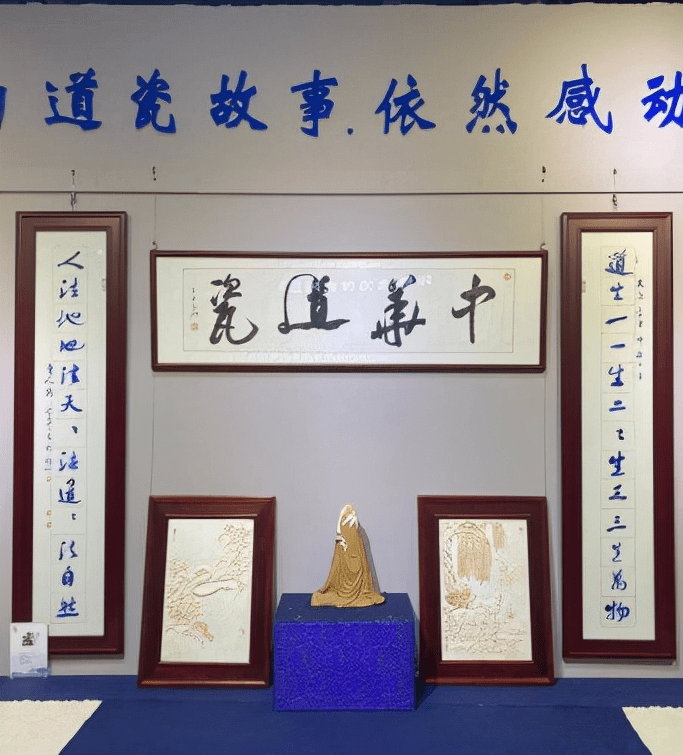 道瓷故事.依然感动
中華道瓷
道生一一生二々生三三生萬物
人法地地法天々法道々法自然